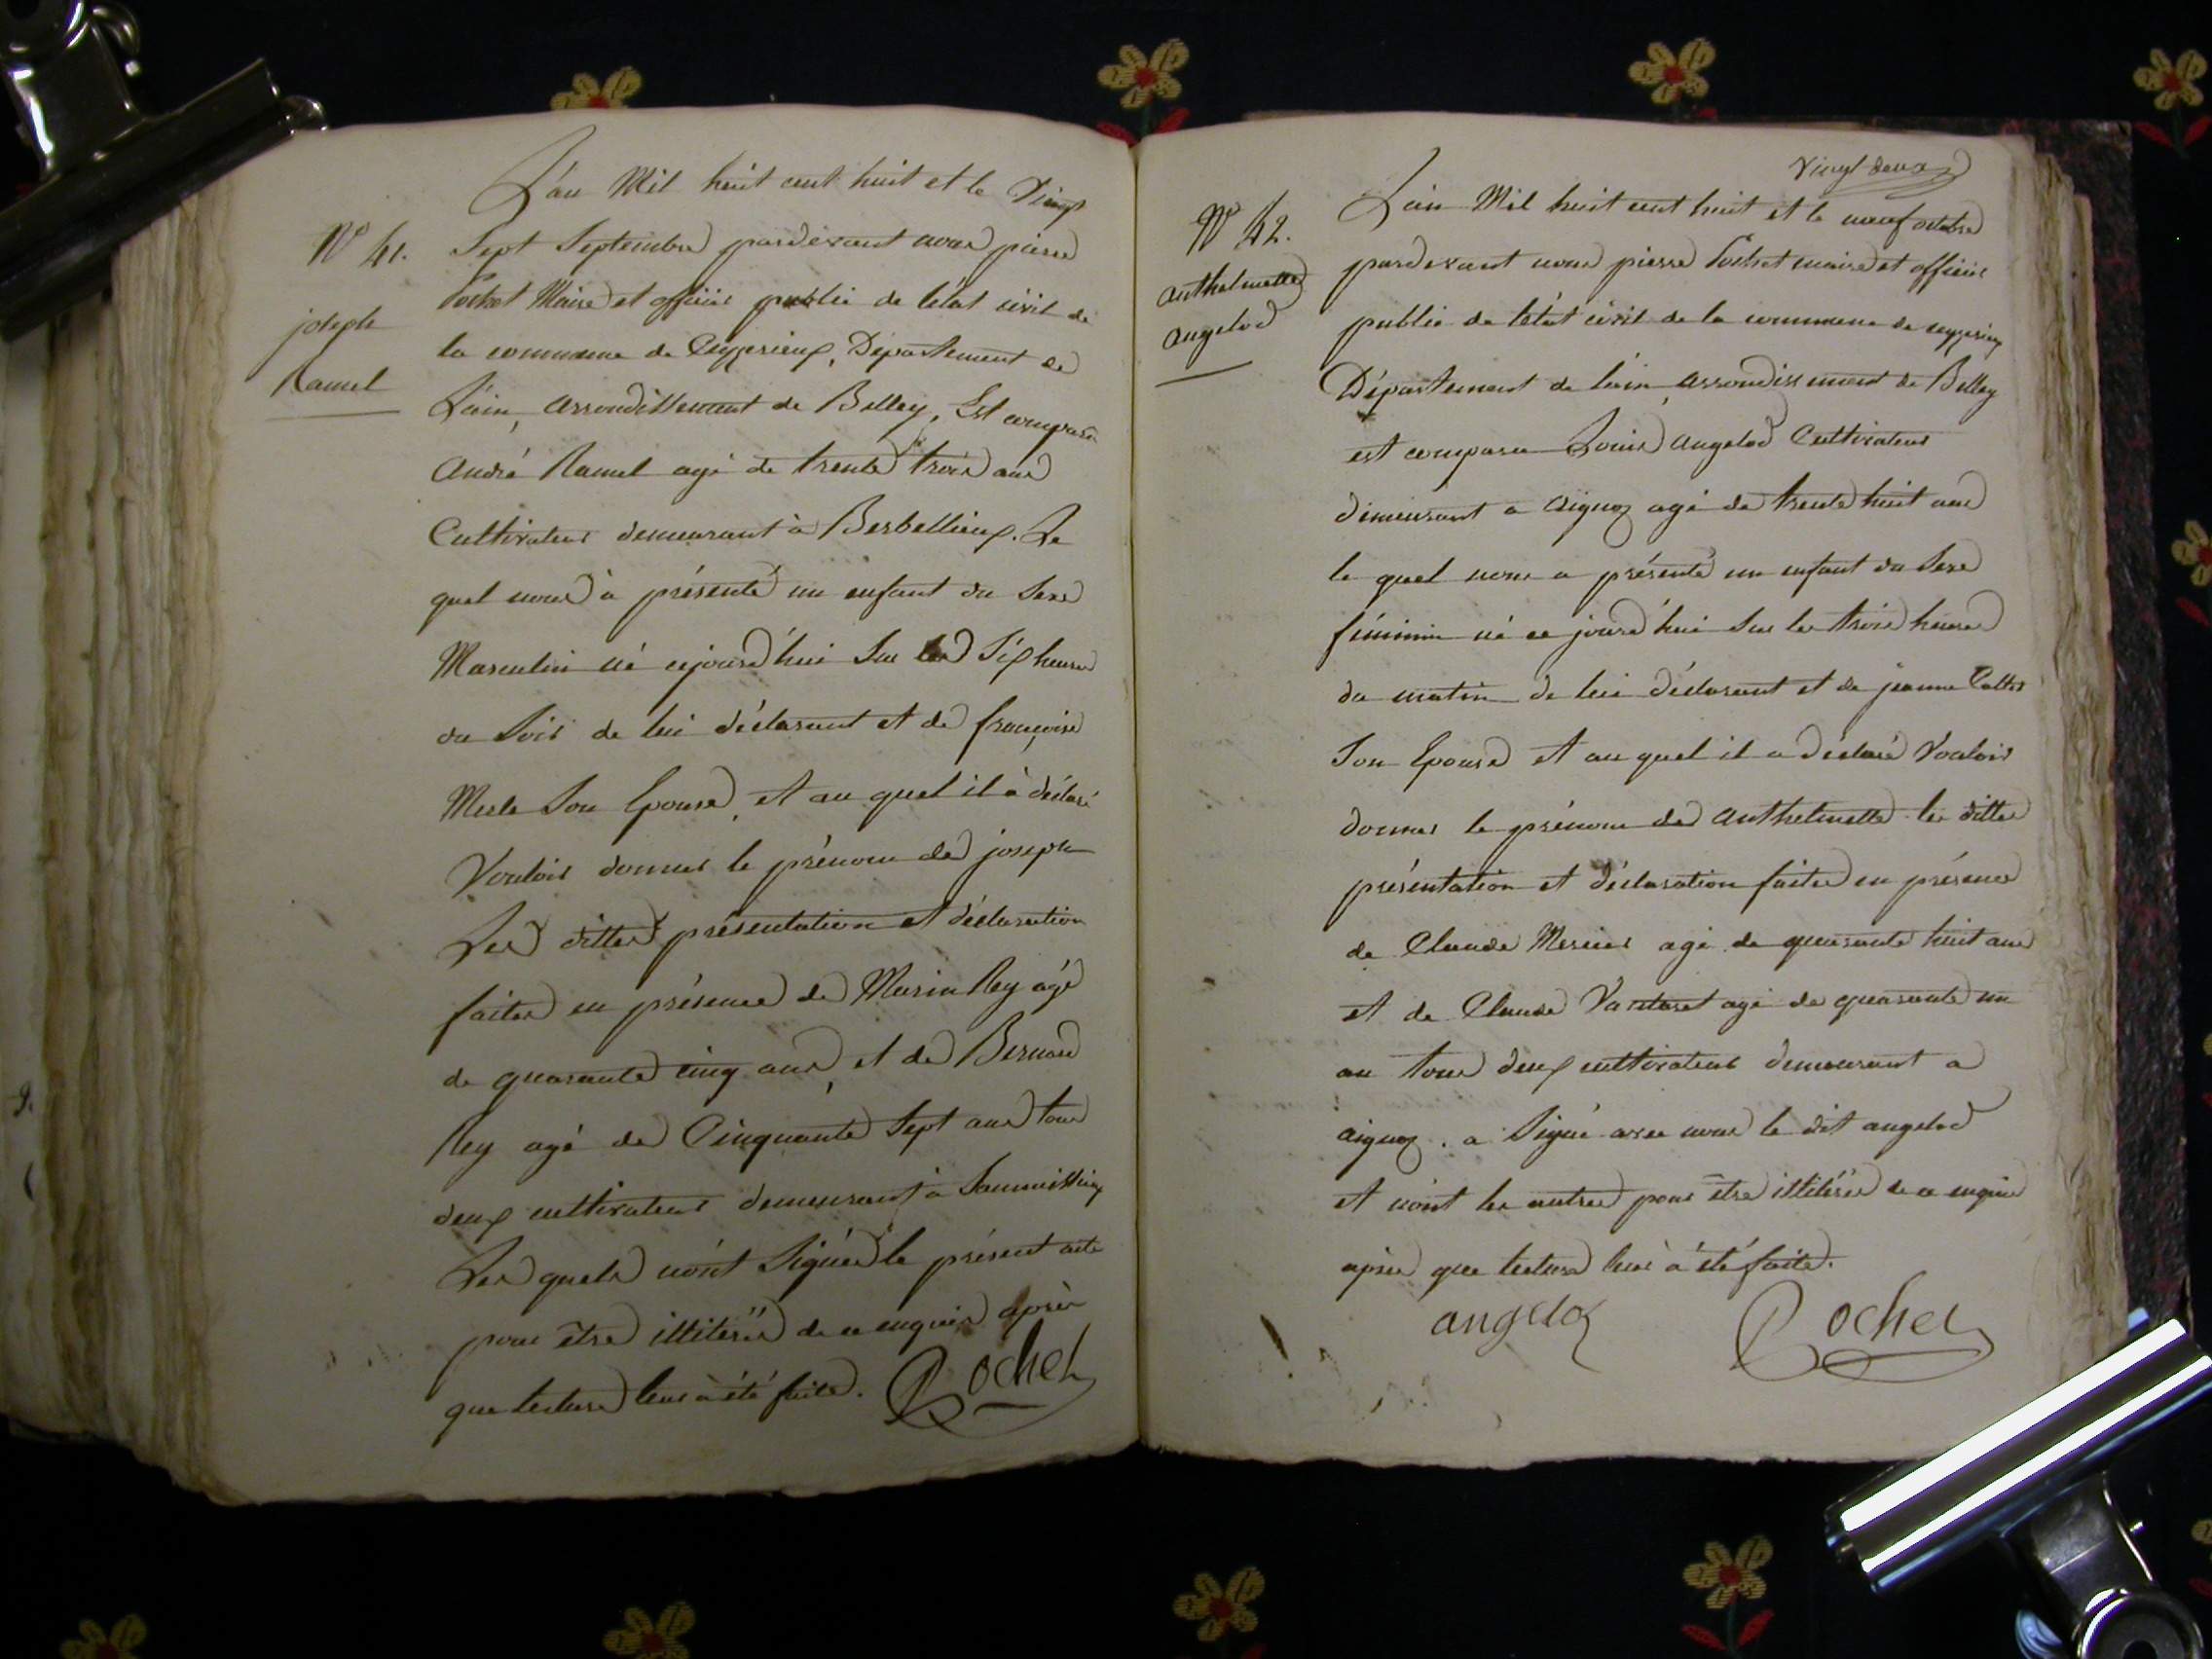 L'an Mil huit cent huit et le Vingt
N° 41.
Sept Septembre pardevant nous pierre
Pochet Maire et officier public de l'état civil de
joseph
la commune de Ceyzerieux, Département de
Ramel
L'ain, arrondissement de Belley, Est comparu
André Ramel agé de trente trois ans
Cultivateur demeurant à Berbellieux. Le
quel nous à présenté un enfant du Sexe
Masculin né cejourd'hui Sur les Six heures
du Soir de lui déclarant et de françoise
Son Epouse, et au quel il à déclaré
Vouloir donner le prénom de joseph
Les dittes présentation et déclaration
faites en présence de Marin Rey agé
de quarante cinq ans, et de Bernard
Rey agé de Cinquante Sept ans tous
deux cultivateurs demeurant à
Les quels n'ont Signés le présent acte
pour être illitérés de ce enquis après
que lecture leur à été faite. Pochet
Vingt deux
N° 42.
L'ain Mil huit cent huit et le neuf octobre
anthelmette
angelod
pardevant nous pierre Pochet maire et officier
public de l'état civil de la commune de ceyzerieux
Département de l'ain, arrondissement de Belley
est comparu Louis angelod Cultivateur
demeurant a aignoz agé de trente huit ans
le quel nous a présenté un enfant du Sexe
féminin né ce jourd'hui Sur les trois heures
du matin de lui déclarant et de jeanne
Son Epouse et au quel il a déclaré Vouloir
donner le prénom de anthelmette les dittes
présentation et déclaration faites en présence
de Claude Mercier agé de quarante huit ans
et de Claude agé de quarante un
an tous deux cultivateurs demeurant a
aignoz. a Signé avec nous le dit angelod
et n'ont les autres pour être illitérés de ce enquis
après que lecture leur à été faite.
angeloz Pochet